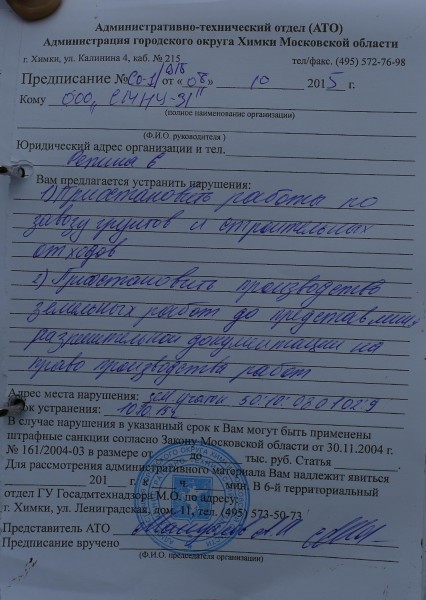 Административно-технический отдел (АТО)
Администрация городского округа Химки Московской области
г. Химки, ул. Калинина 4, каб. № 215 тел/факс. (495) 572-76-98
Предписание № СО-1/315 от « 08 » 10 2015 г.
Кому ООО „СМНУ-31"
(полное наименование организации)
(Ф.И.О. руководителя )
Юридический адрес организации и тел.
Репина 6
Вам предлагается устранить нарушения:
1) Приостановить работы по
завозу грунтов и строительных
отходов
2) Приостановить производство
земельных работ до представления
разрешительной документации на
право производства работ
Адрес места нарушения: зем участок 50:10:0801029
Срок устранения: 10.10.15г.
В случае нарушения в указанный срок к Вам могут быть применены
штрафные санкции согласно Закону Московской области от 30.11.2004 г.
№ 161/2004-03 в размере от до тыс. руб. Статья .
Для рассмотрения административного материала Вам надлежит явиться
201 к ч мин. В 6-й территориальный
отдел ГУ Госадмтехнадзора М.О. по адресу:
г. Химки, ул. Ленинградская, дом. 11, тел. (495) 573-50-73
Представитель АТО
Предписание вручено
(Ф.И.О. председателя организации)